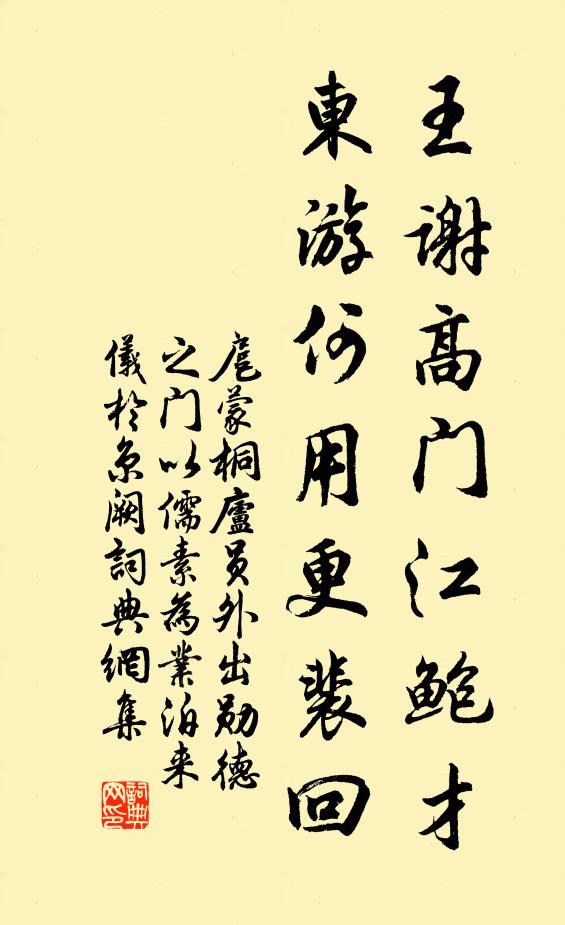 王謝高门江鲍才
東游何用更裴回
扈蒙桐廬員外出勛德
之门以儒素為業泊来
儀於京阙詞典網集
詞典网印